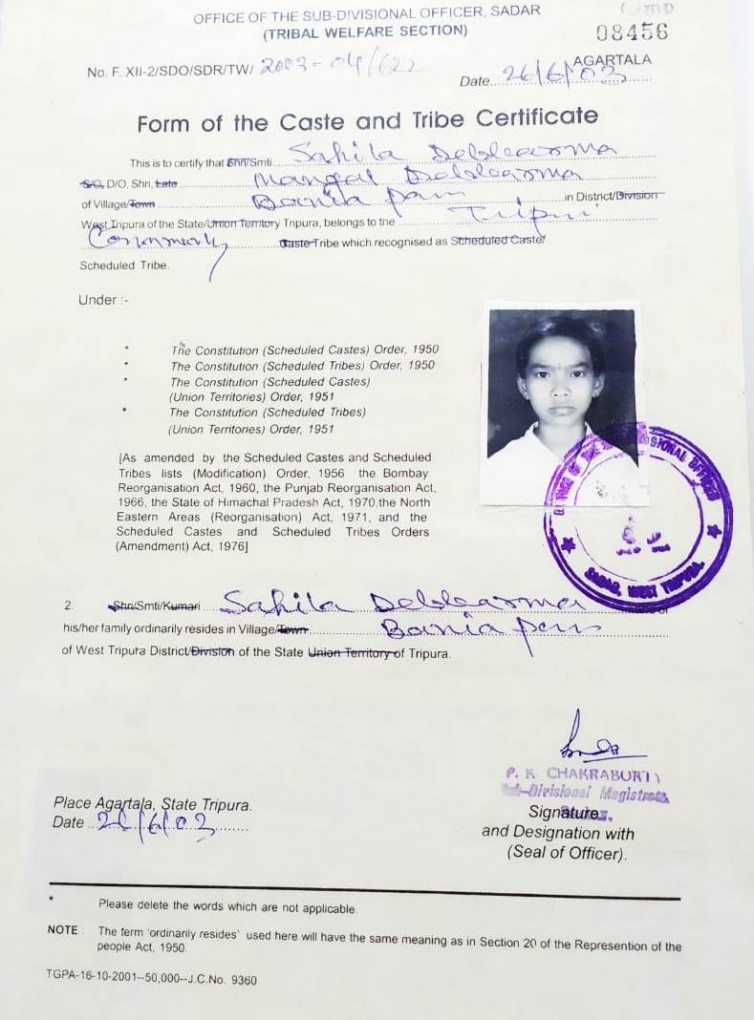 OFFICE OF THE SUB-DIVISIONAL OFFICER, SADAR
(TRIBAL WELFARE SECTION)
08456
No. F. XII-2/SDO/SDR/TW/ 2003-04/622
AGARTALA
Date 26/6/03
Form of the Caste and Tribe Certificate
This is to certify that Shri/Smti Sahila Debbarma
S/O, D/O, Shri, Late Mangal Debbarma
of Village/Town Bania para in District/Division
West Tripura of the State/Union Territory Tripura, belongs to the Tripuri
Community Caste Tribe which recognised as Scheduled Caste/
Scheduled Tribe.
Under :-
* The Constitution (Scheduled Castes) Order, 1950
* The Constitution (Scheduled Tribes) Order, 1950
* The Constitution (Scheduled Castes)
(Union Territories) Order, 1951
* The Constitution (Scheduled Tribes)
(Union Territories) Order, 1951
[As amended by the Scheduled Castes and Scheduled
Tribes lists (Modification) Order, 1956 the Bombay
Reorganisation Act, 1960, the Punjab Reorganisation Act,
1966, the State of Himachal Pradesh Act, 1970,the North
Eastern Areas (Reorganisation) Act, 1971, and the
Scheduled Castes and Scheduled Tribes Orders
(Amendment) Act, 1976]
SADAR, WEST TRIPURA.
2. Shri/Smti/Kumari Sahila Debbarma
his/her family ordinarily resides in Village/Town Bania para
of West Tripura District/Division of the State Union Territory of Tripura.
P. K CHAKRABURTY
Sub-Divisional Magistrate
Place Agartala, State Tripura.
Date 26/6/03
Signature
and Designation with
(Seal of Officer).
* Please delete the words which are not applicable.
NOTE The term 'ordinarily resides' used here will have the same meaning as in Section 20 of the Represention of the
people Act, 1950.
TGPA-16-10-2001--50,000--J.C.No. 9360